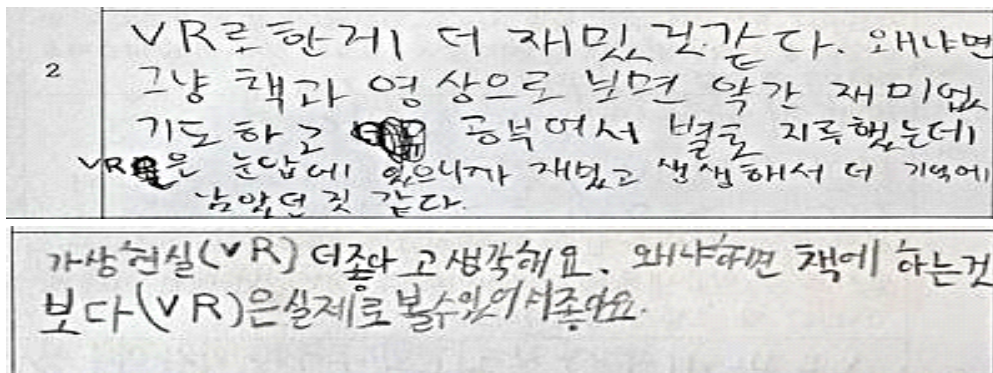 VR로 한게 더 재밌것같다. 왜냐면
2
그냥 책과 영상으로 보면 약간 재미없
기도 하고 공부여서 별로 지루했는데
VR은 눈앞에 있으니까 재밌고 생생해서 더 기억에
남았던 것 같다.
가상현실(VR) 더좋다고생각해요. 왜냐하면 책에 하는것
보다(VR)은실제로볼수있어서좋아요.